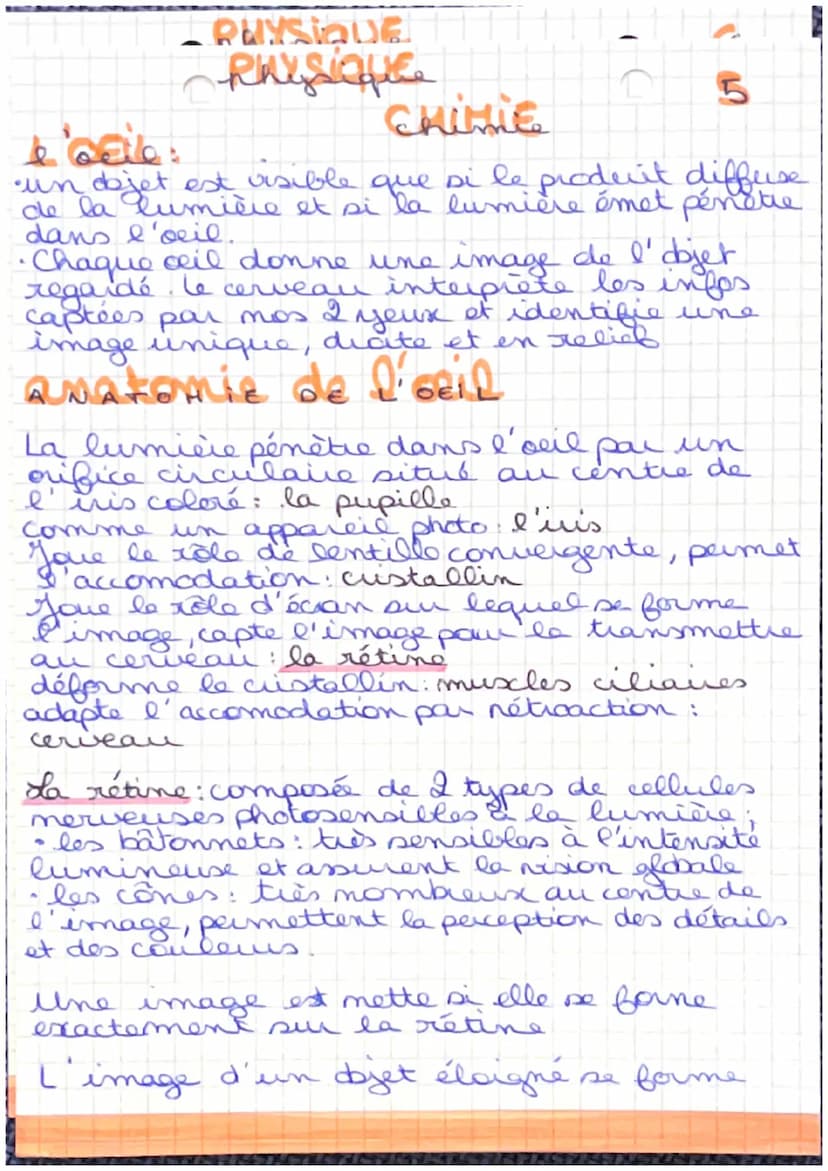 PHYSIQUE
PHYSIQUE
Physique
5
CHIMIE
Chimie
L'OEIL:
l'oeil:
•un objet est visible que si le produit diffuse
de la lumière et si la lumière émet pénètre
dans l'oeil.
•Chaque oeil donne une image de l'objet
regardé. Le cerveau interprète les infos
captées par nos 2 yeux et identifie une
image unique, droite et en relief
anatomie de l'oeil
ANATOMIE DE L'OEIL
La lumière pénètre dans l'oeil par un
orifice circulaire situé au centre de
l'iris coloré: la pupille
comme un appareil photo: l'iris
Joue le rôle de lentille convergente, permet
l'accomodation: cristallin
Joue le rôle d'écran sur lequel se forme
l'image, capte l'image pour la transmettre
au cerveau: la rétine
déforme le cristallin: muscles ciliaires
adapte l'accomodation par rétroaction:
cerveau
La rétine: composée de 2 types de cellules
nerveuses photosensibles à la lumière;
• les bâtonnets: très sensibles à l'intensité
lumineuse et assurent la vision globale
• les cônes: très nombreux au centre de
l'image, permettent la perception des détails
et des couleurs.
Une image est nette si elle se forme
exactement sur la rétine
L'image d'un objet éloigné se forme